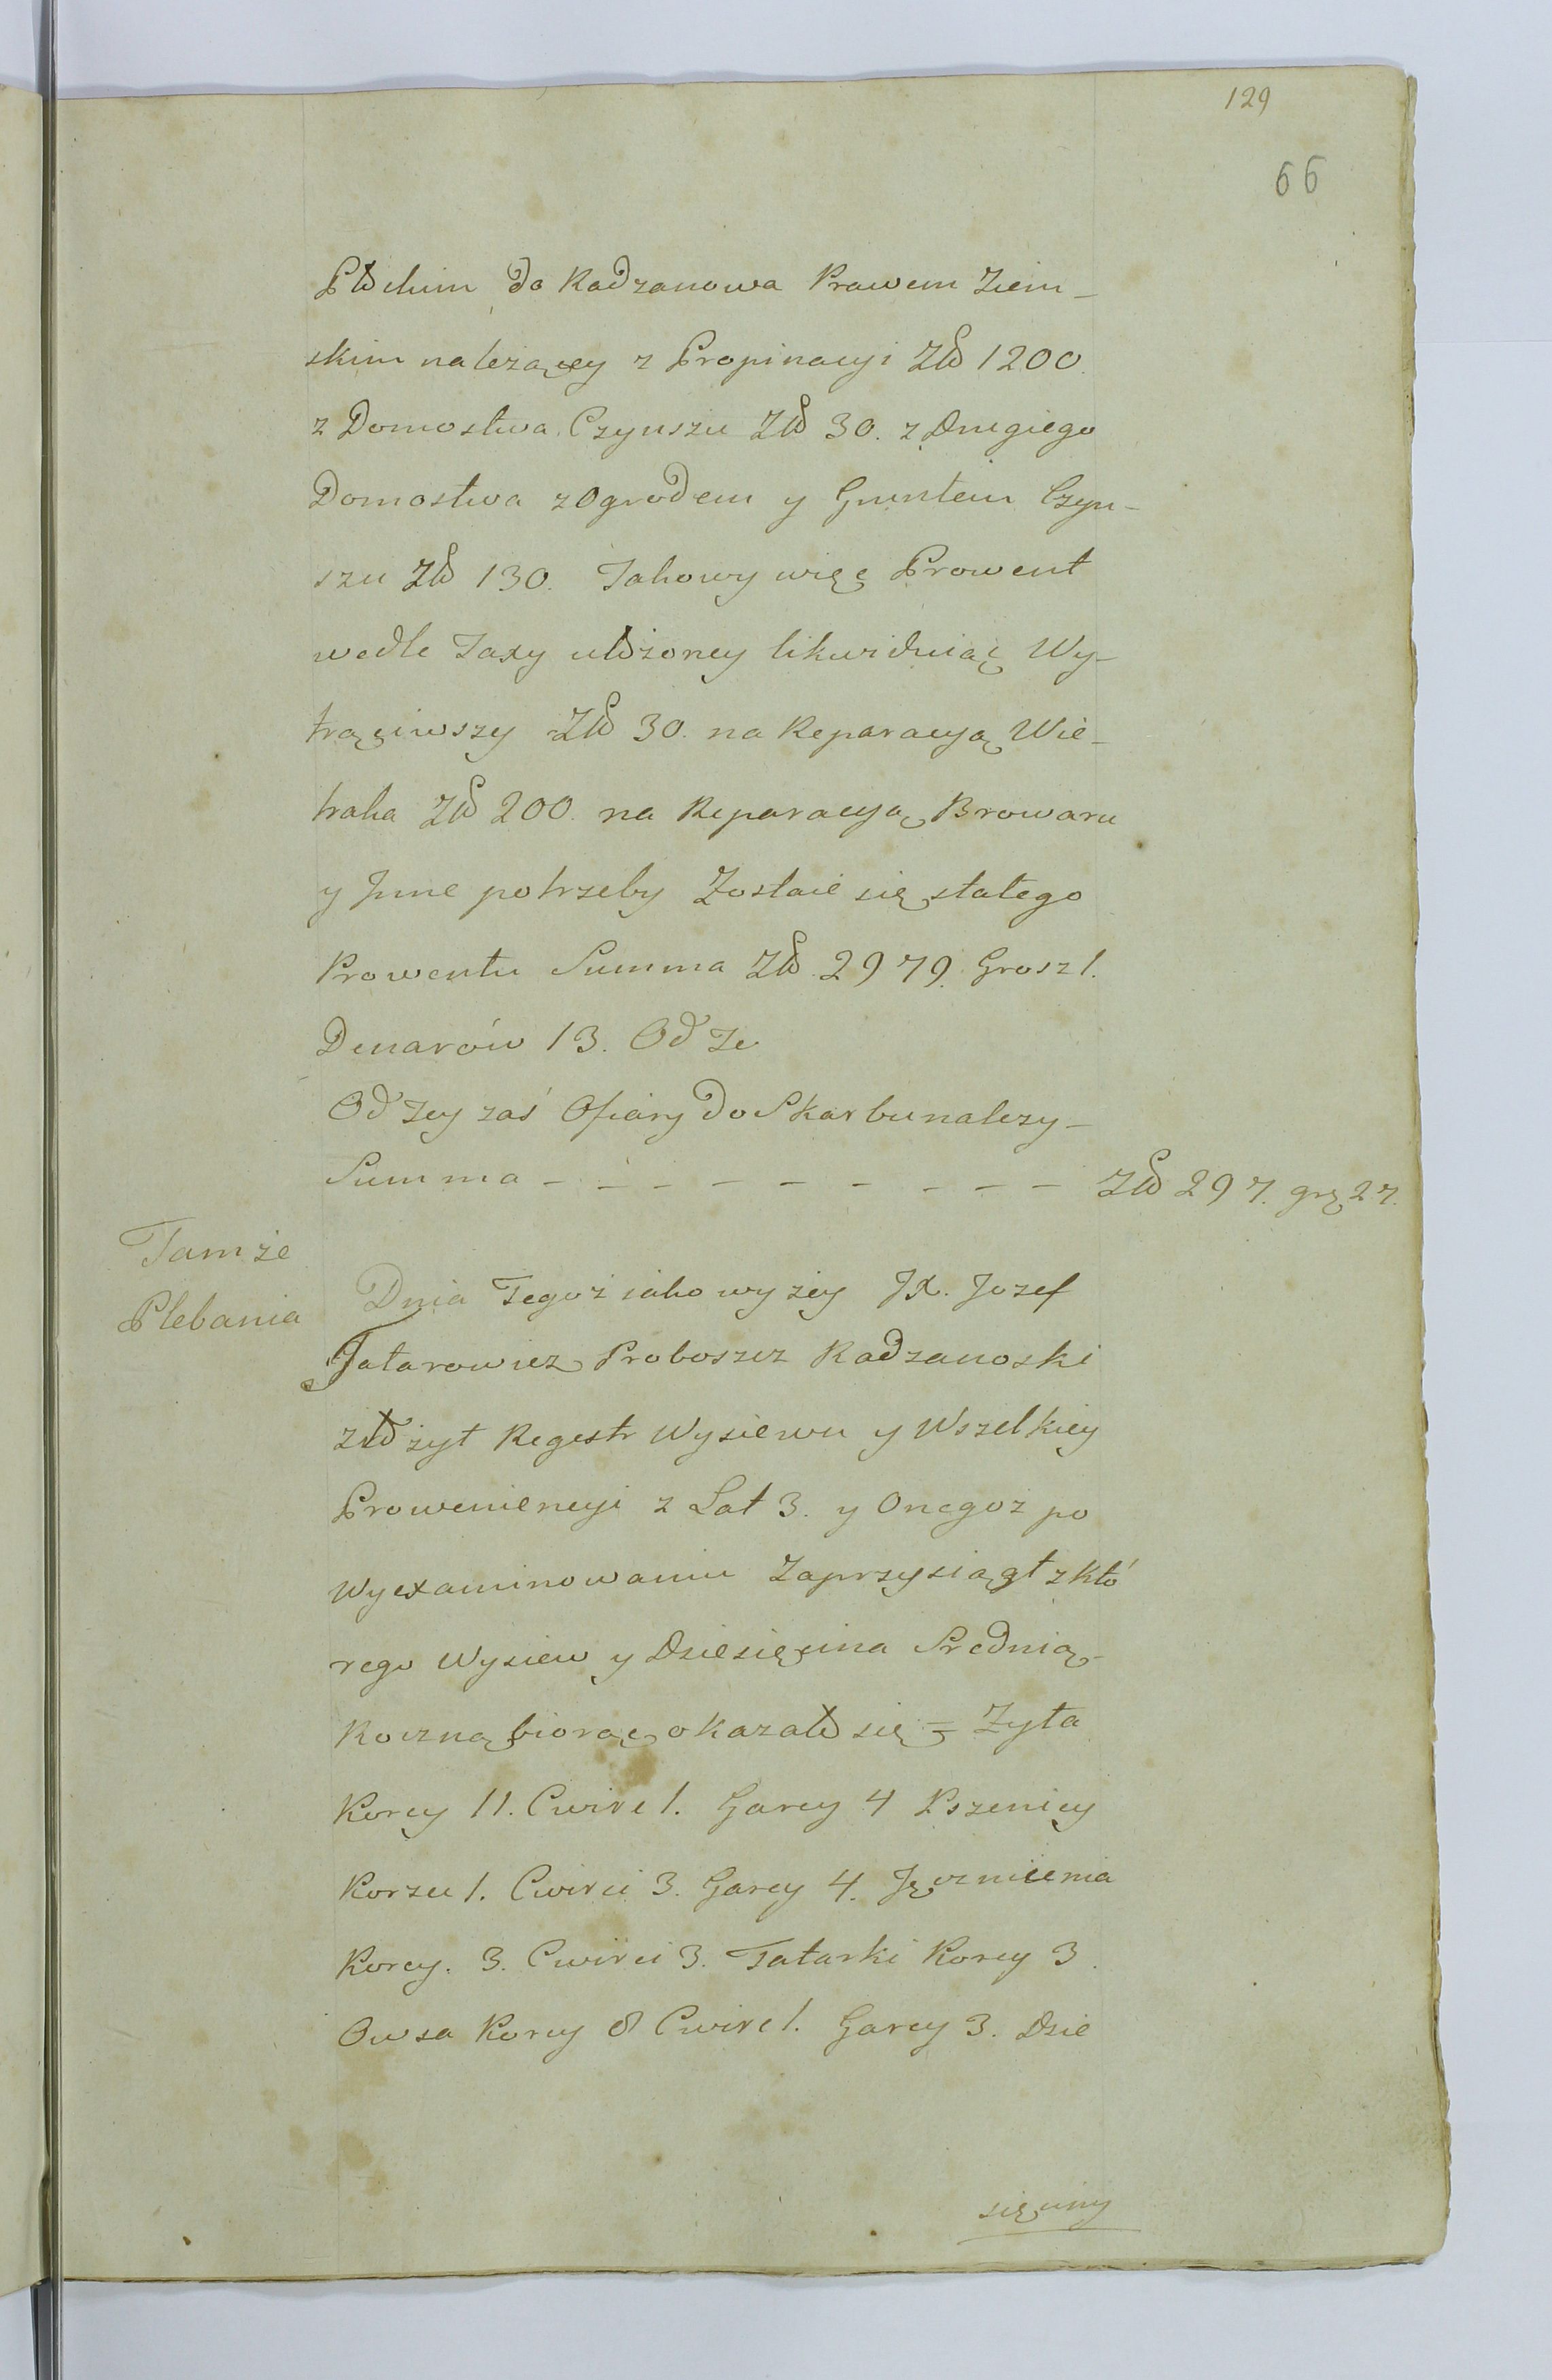 129
66
Płockim do Radzanowa Prawem Ziem-
skim nalezącey z Propinacyi Zło 1200.
z Domostwa Czynszu Zło 30. z Drugiego
Domostwa z Ogrodem y Gruntem Czyn-
szu Zło 130. Takowy więc Prowent
wedle Taxy ułożoney likwiduiąc Wy-
trąciwszy Zło 30. na Reparacyą Wia-
traka Zło 200. na Reparacyą Browaru
y Jnne potrzeby Zostaie się stałego
Prowentu Summa Zło 2979. Grosz 1.
Denarów 13. Od Te
Od Tey zaś Ofiary do Skarbu nalezy-
Summa - - - - - - - - - - Zło 297. gr. 27.
Tamże
Plebania
Dnia Tegoż iako wyżey JX. Jozef
Tatarowicz Proboszcz Radzanoski
złożył Regestr Wysiewu y Wszelkiey
Proweniencyi z Lat 3. y Onegoż po
Wyexaminowaniu Zaprzysiągł z Któ
rego Wysiew y Dziesięcina Srednią-
Roczną biorąc okazało się = Zyta
Korcy 11. Cwirc 1. Garcy 4 Pszenicy
Korzec 1. Cwirci 3. Garcy 4. Jęczmienia
Korcy. 3. Cwirci 3. Tatarki Korcy 3.
Owsa Korcy 8 Cwirc 1. Garcy 3. Dzie
sięciny